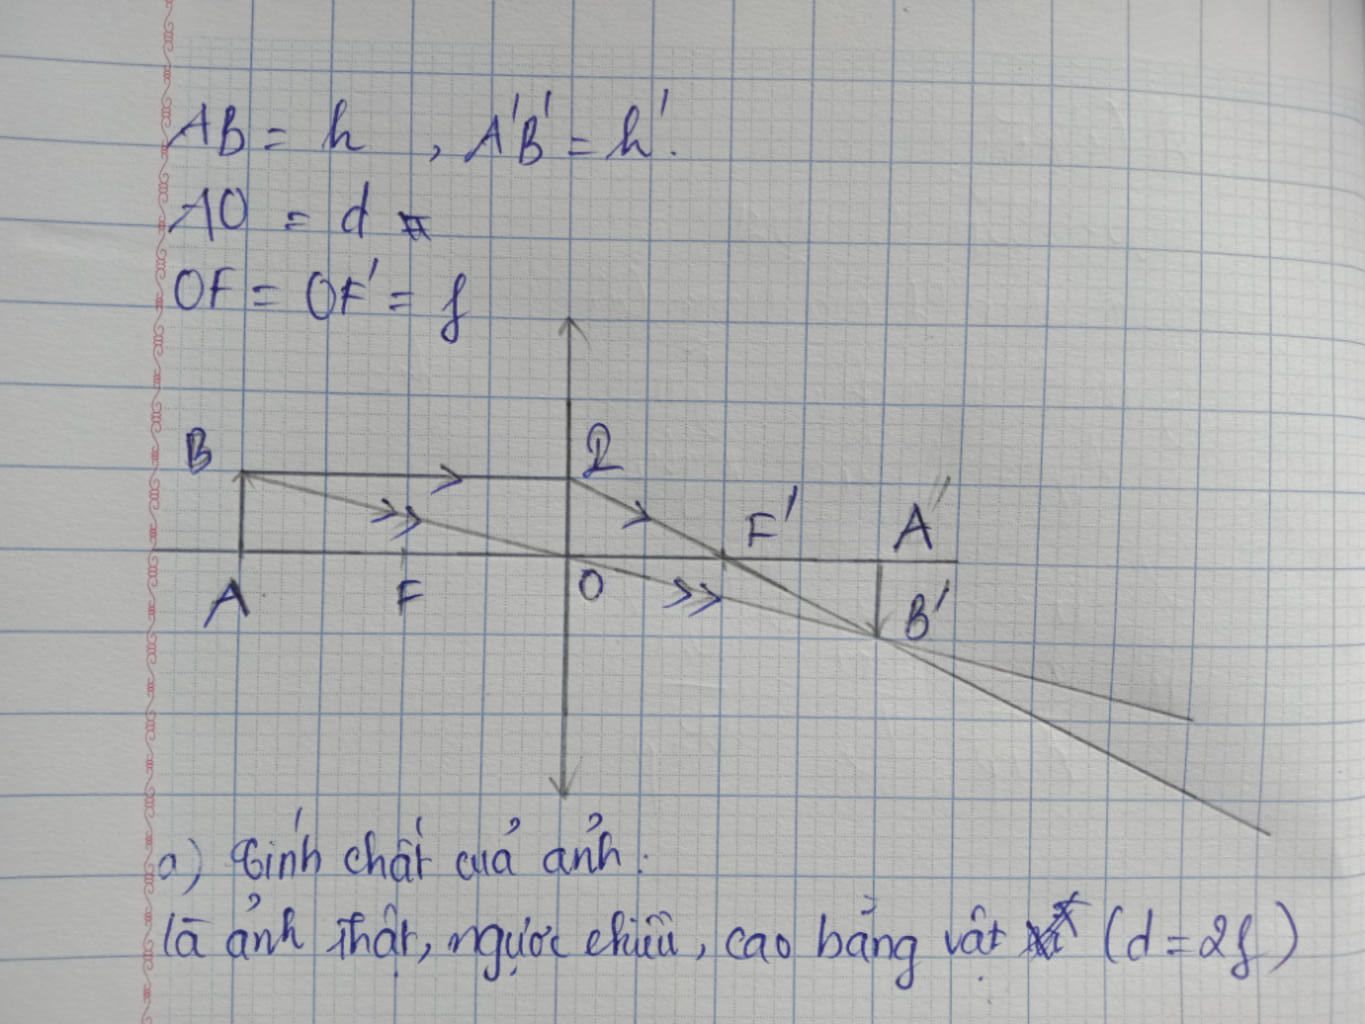 AB = h , A'B' = h'.
AO = d =
OF = OF' = f
B
I
F'
A'
A
F
O
B'
a) tính chất củả ảnh.
là ảnh thật, ngược chiều, cao bằng vật (d = 2f)